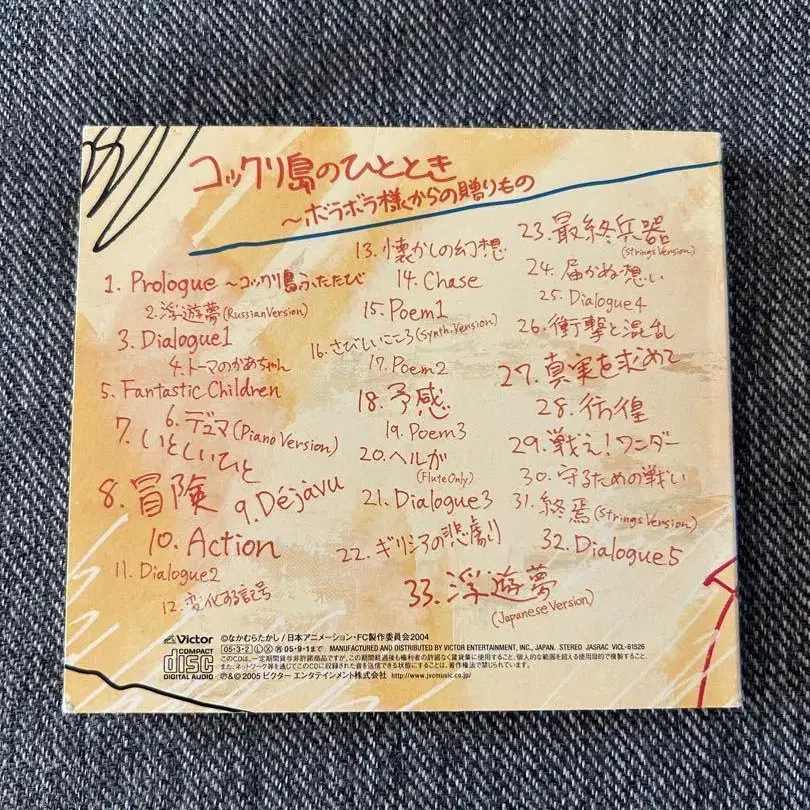 コックリ島のひととき
～ボラボラ様からの贈りもの
1. Prologue ～コックリ島ふたたび
2. 浮遊夢(Russian Version)
3. Dialogue1
4. トーマのかあちゃん
5. Fantastic Children
6. デュマ(Piano Version)
7. いとしいひと
8. 冒険
9. Déjàvu
10. Action
11. Dialogue2
12. 変化する記号
13. 懐かしの幻想
14. Chase
15. Poem1
16. さびしいこころ(Synth. Version)
17. Poem2
18. 予感
19. Poem3
20. ヘルガ
(Flute Only)
21. Dialogue3
22. ギリシアの悲劇
23. 最終兵器
(Strings Version)
24. 届かぬ想い
25. Dialogue4
26. 衝撃と混乱
27. 真実を求めて
28. 彷徨
29. 戦え!ワンダー
30. 守るための戦い
31. 終焉(Strings Version)
32. Dialogue5
33. 浮遊夢
(Japanese Version)
Victor
COMPACT
disc
DIGITAL AUDIO
©なかむらたかし/日本アニメーション・FC製作委員会2004
05・3・2 Ⓛ Ⓧ Ⓗ 05・9・1まで MANUFACTURED AND DISTRIBUTED BY VICTOR ENTERTAINMENT, INC., JAPAN. STEREO JASRAC VICL-61526
このCDは、一定期間貸与非許諾商品ですが、この期間経過後も権利者の許諾なく賃貸業に使用すること、個人的な範囲を超える使用目的で複製すること、
また、ネットワーク等を通じてこのCDに収録された音を送信できる状態にすることは、著作権法で禁じられています。
Ⓟ&©2005 ビクター エンタテインメント株式会社 http://www.jvcmusic.co.jp/